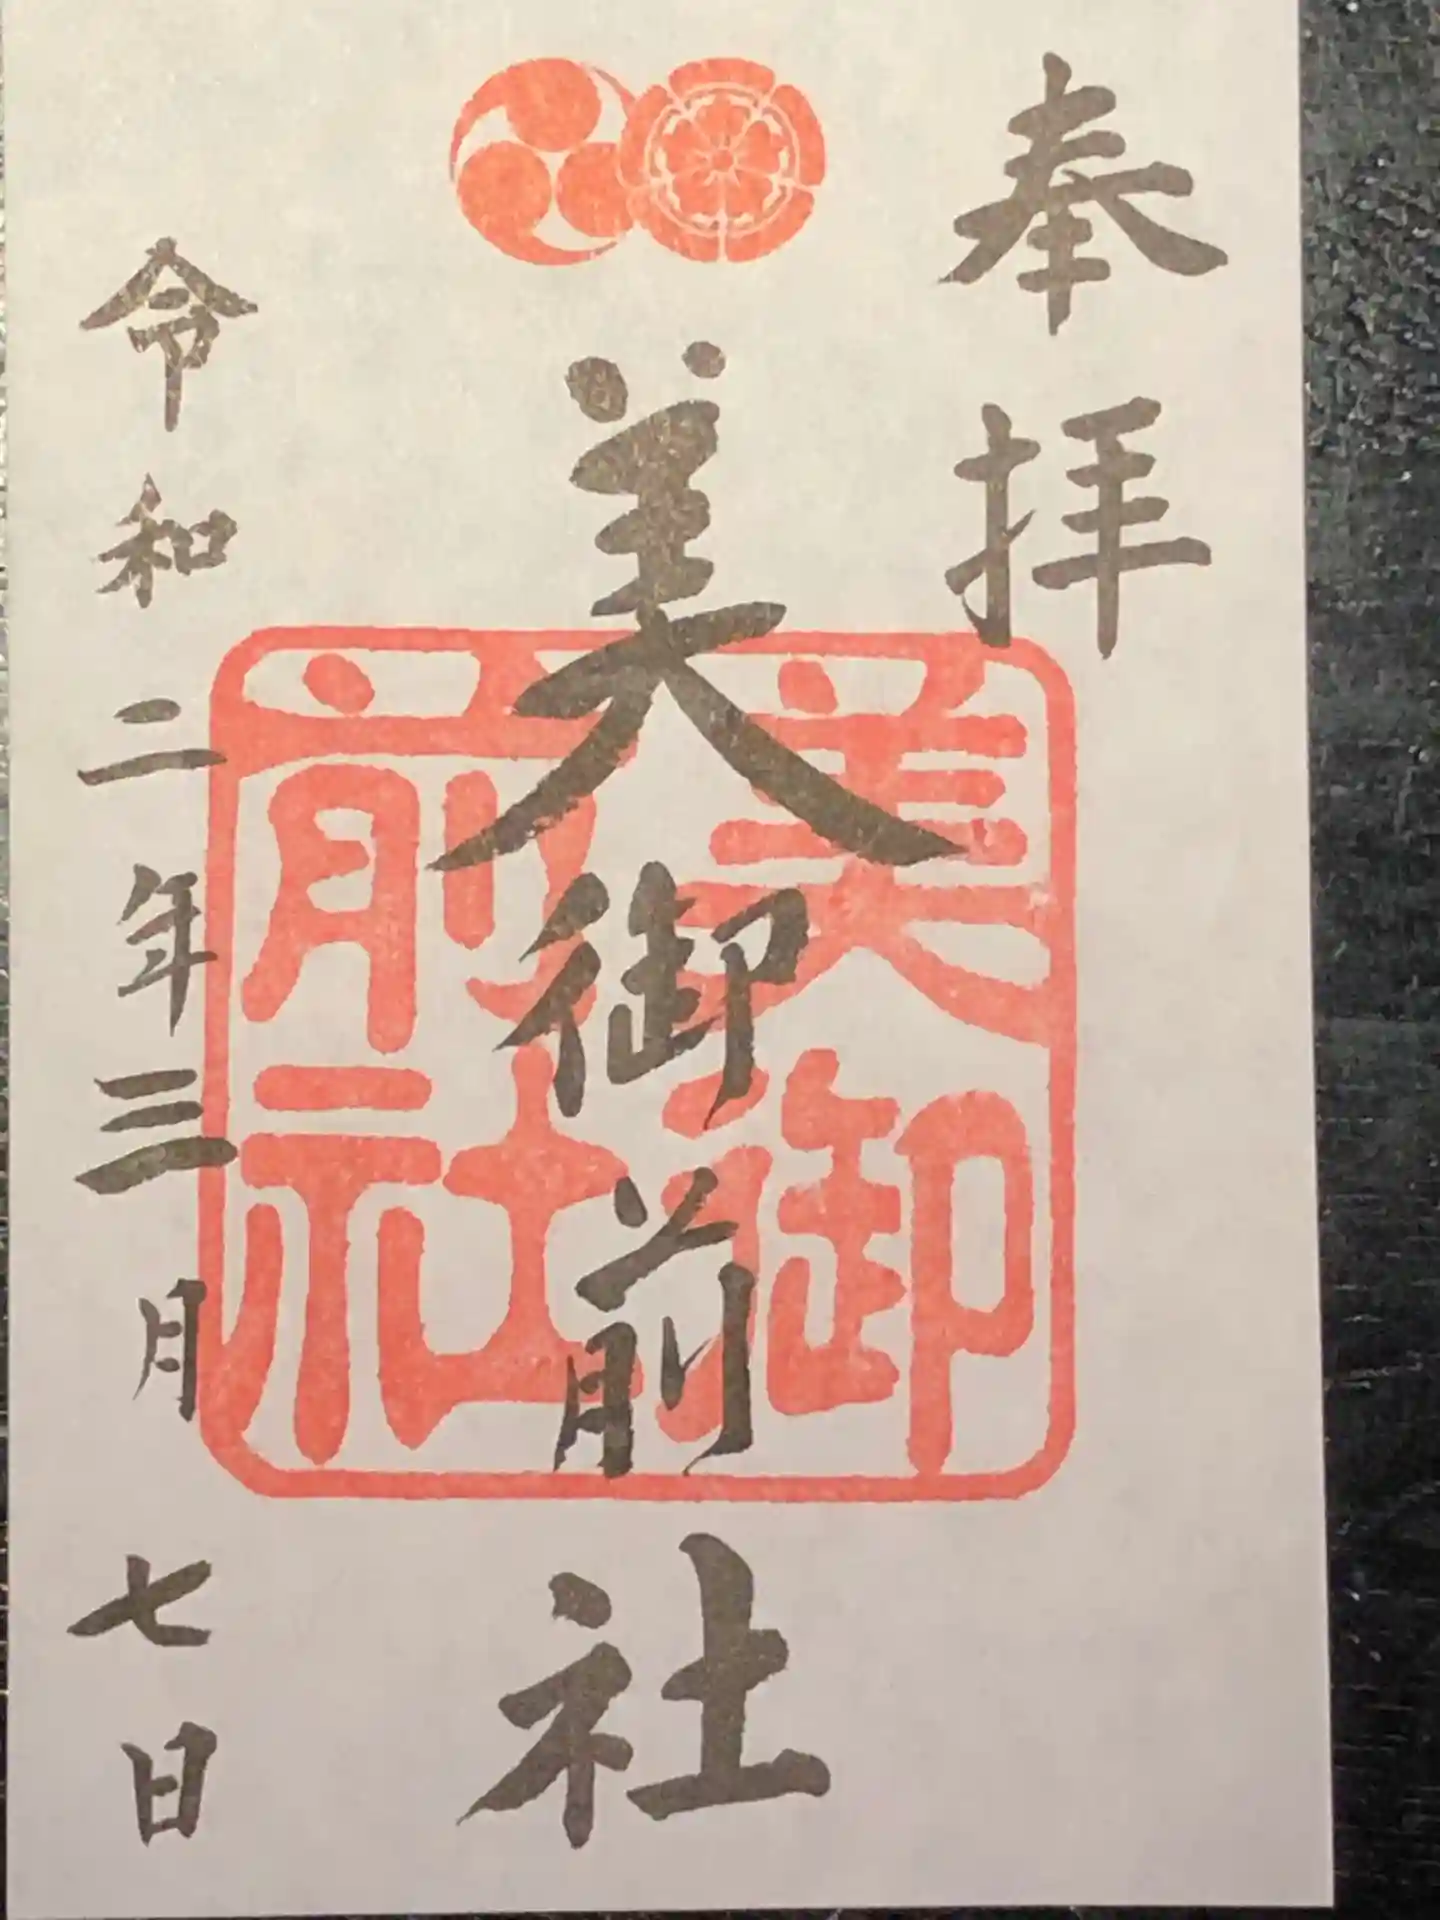 奉拝
美御前社
美御前社
令和二年三月七日